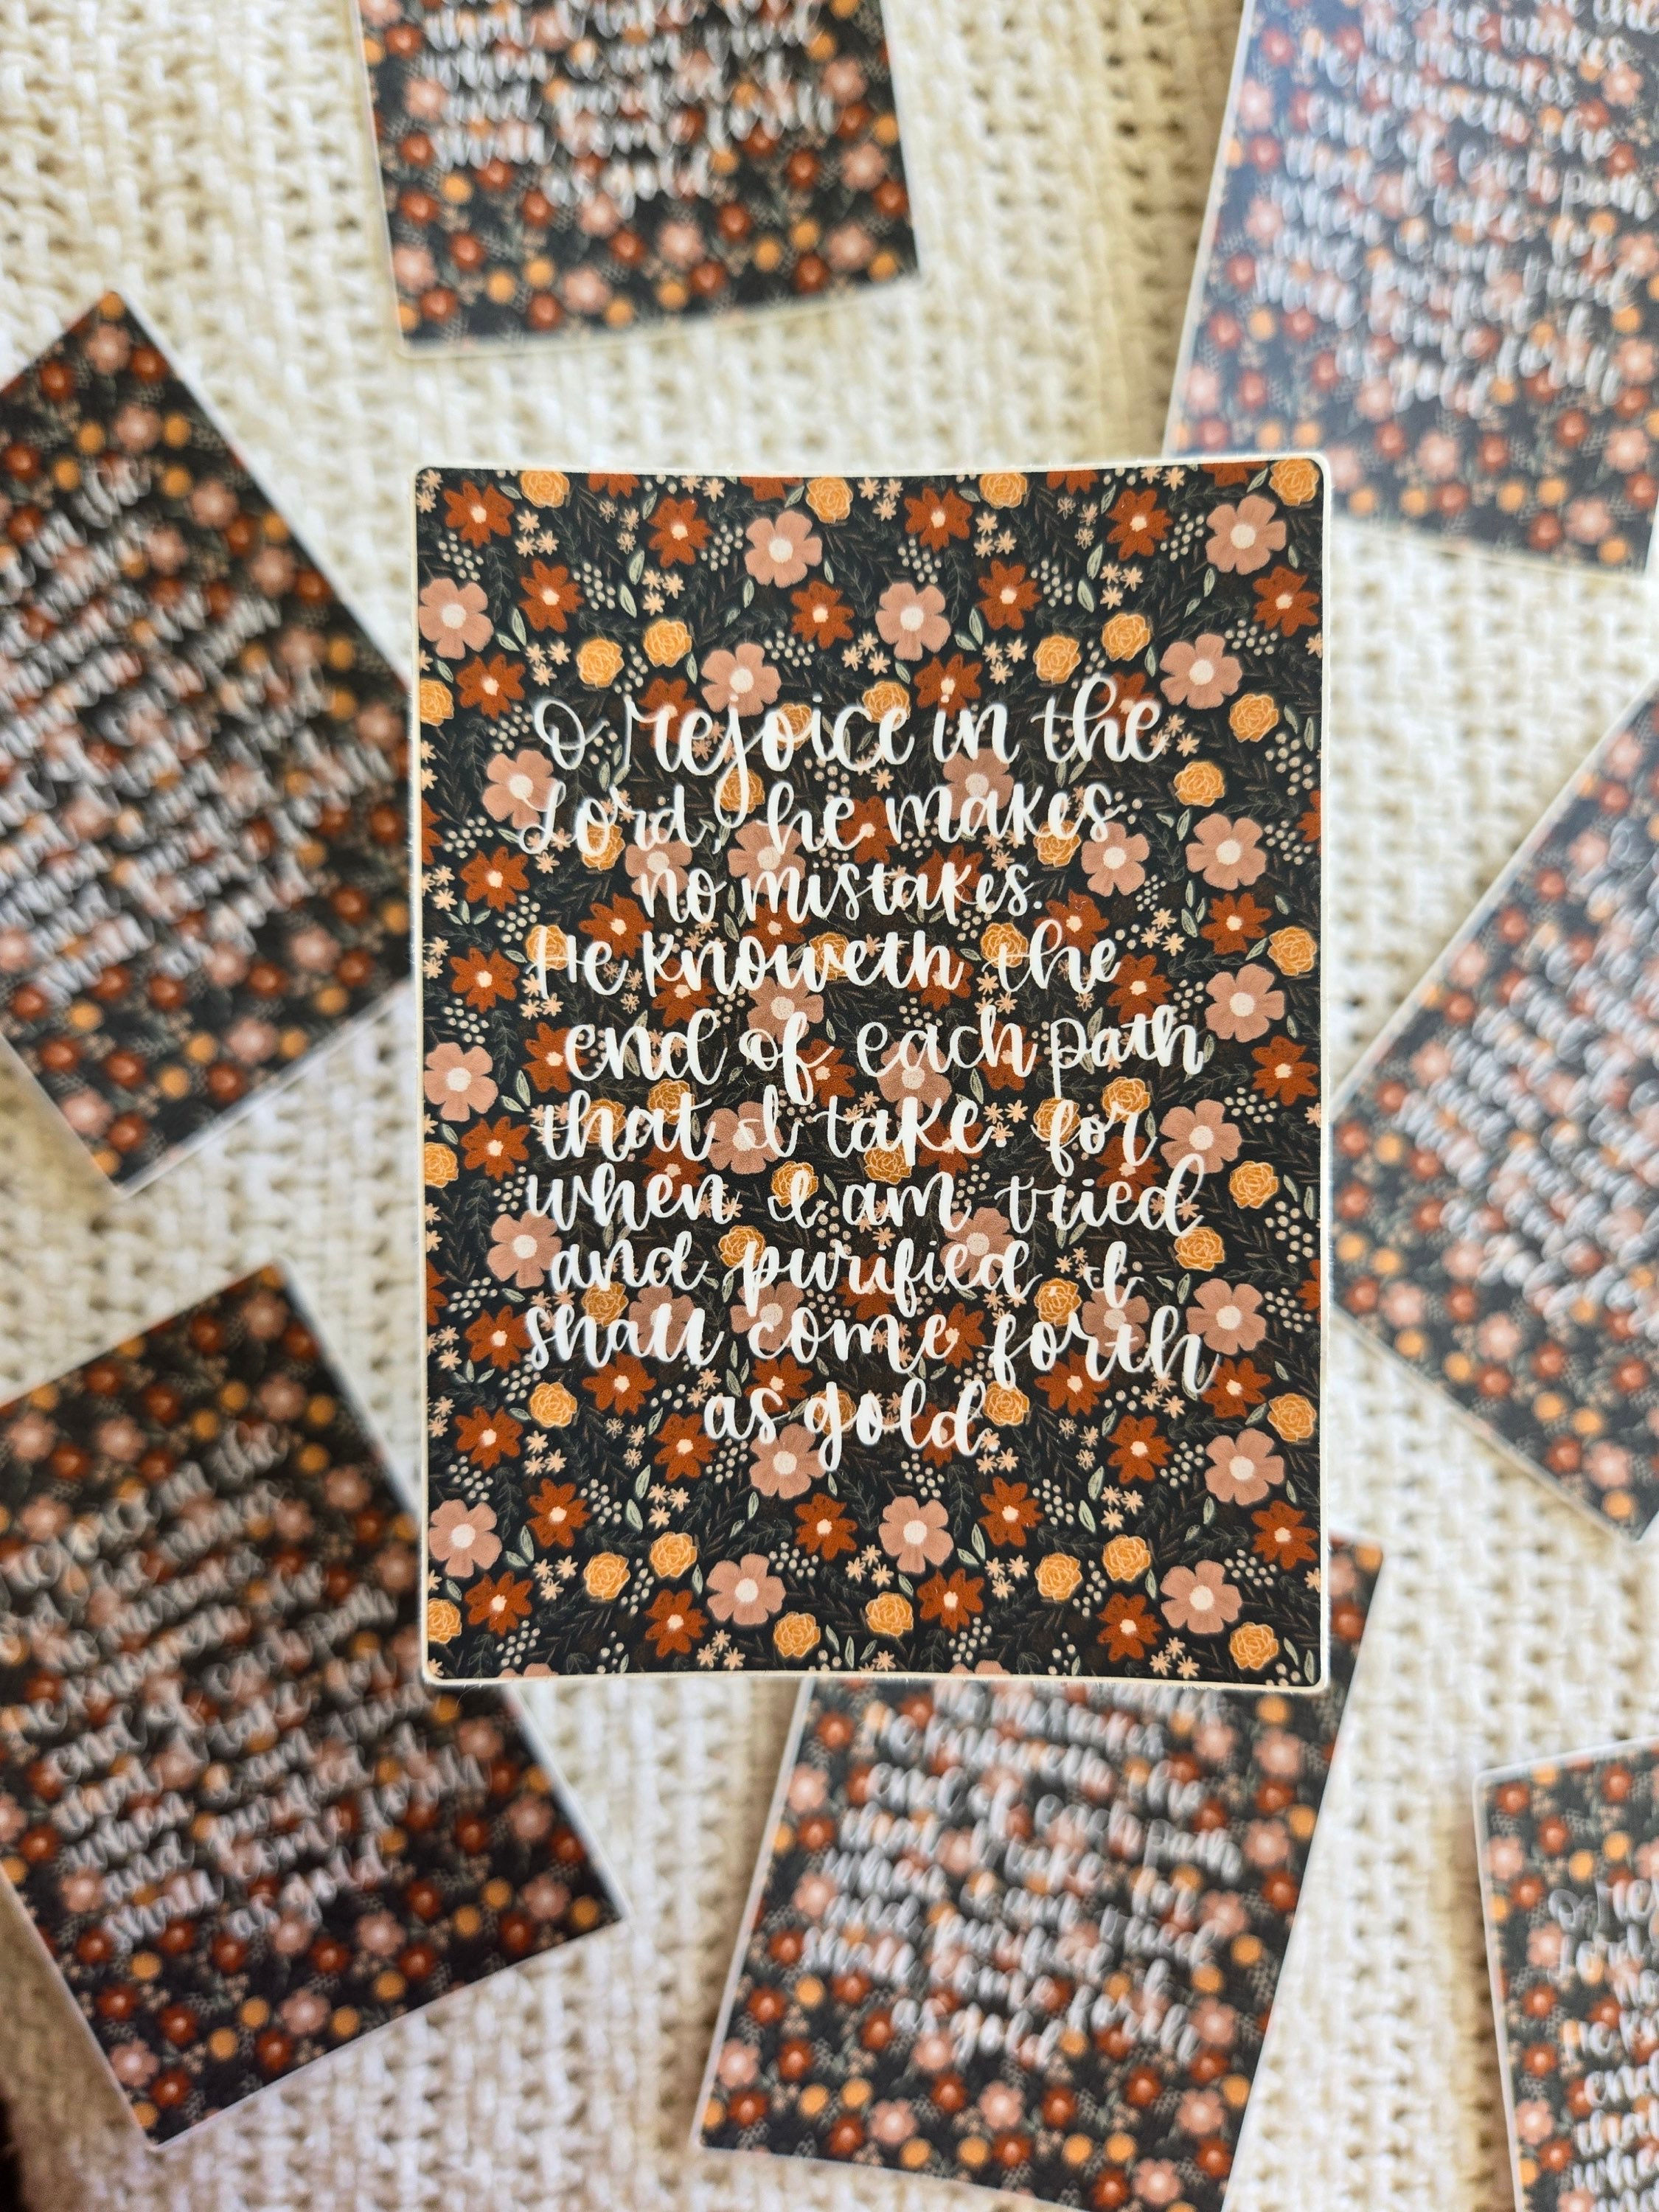 O rejoice in the
Lord, he makes
no mistakes.
He knoweth the
end of each path
that I take for
when I am tried
and purified, I
shall come forth
as gold.